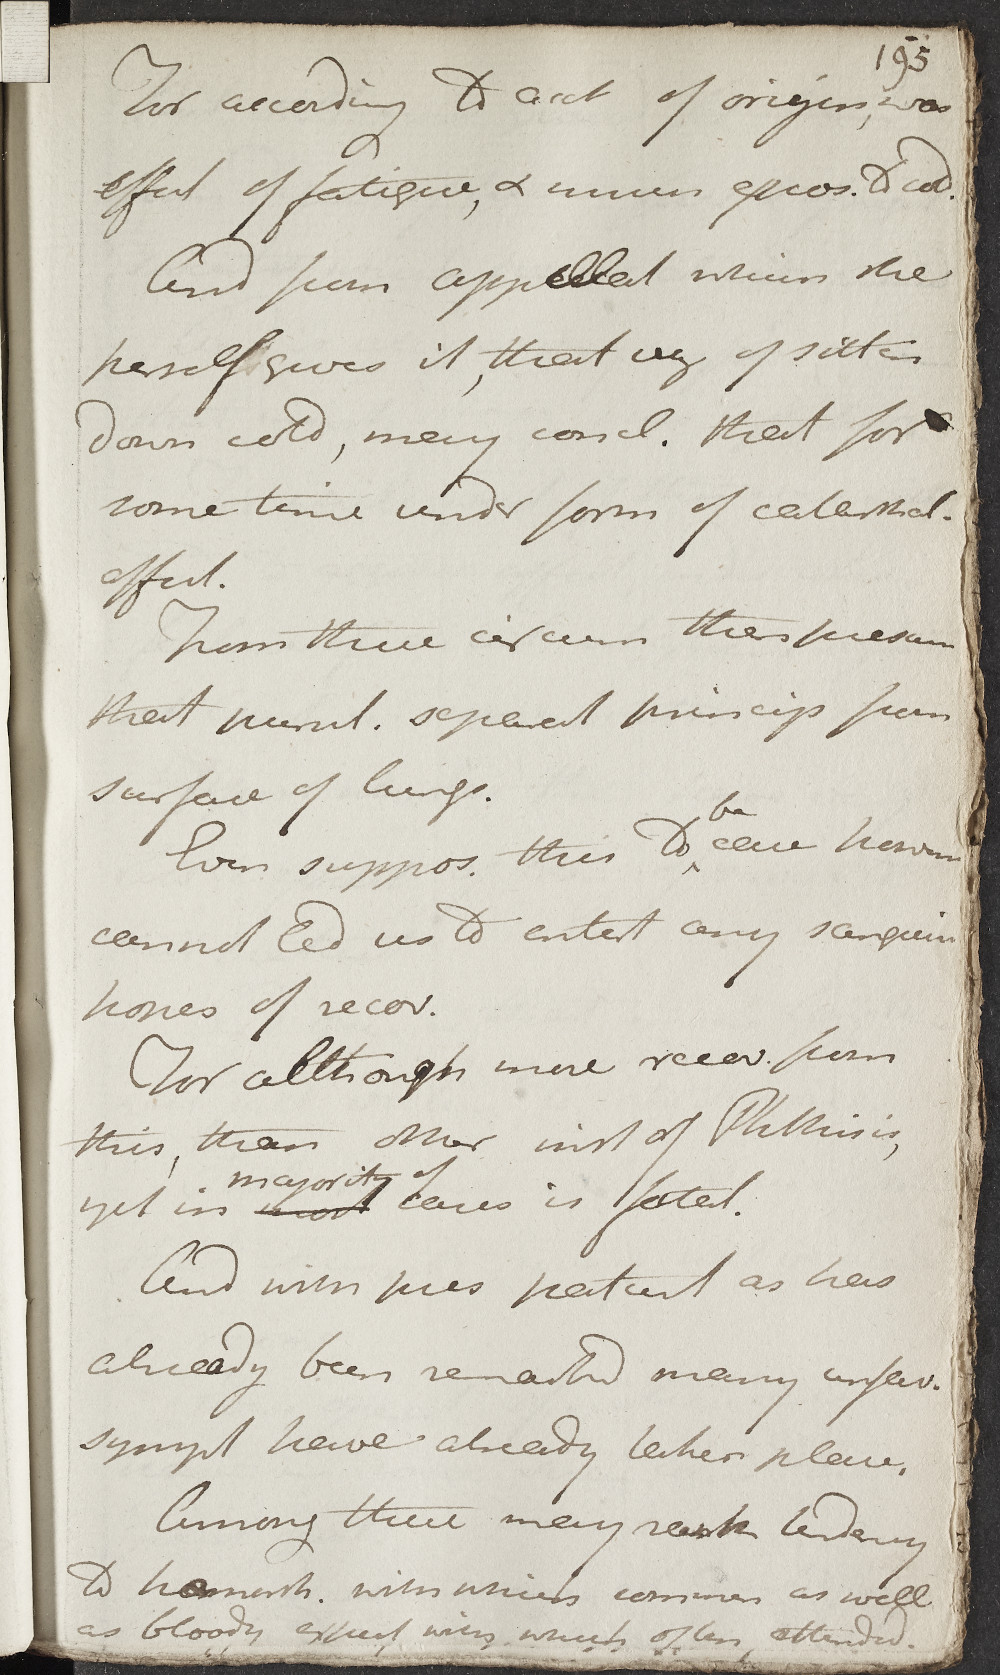 195
For according to acct of origin, was
effect of fatigue, & unus expos. to cold.
And from appellat which she
herself gives it, that viz of sitten
down cold, may concl. that for
some time under form of catarrhal.
affect.
From these circum then presum
that purul. separat princip from
surface of lungs.
Even suppos. this to be case howev
cannot led us to entert any sanguin
hopes of recov.
For allthough more recov. from
this, than other inst of Phthisis,
yet in majority of cases is fatal.
And with pres patient as has
already been remarkd many unfav.
sympt have already taken place.
Among these may rank tendency
to hæmorrh. with which commen as well
as bloody expect with which often attended.